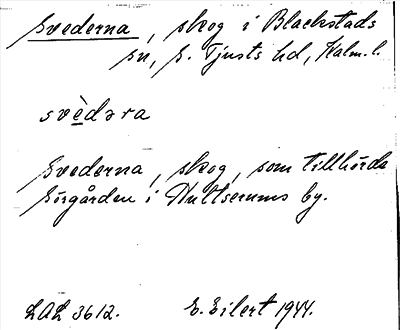 Svederna, skog i Blackstads
sn, S. Tjusts hd, Kalm. l.
svèdəra
Svederna, skog, som tillhörde
Sörgården i Hultserums by.
LAL 3612. E. Eilert 1944.